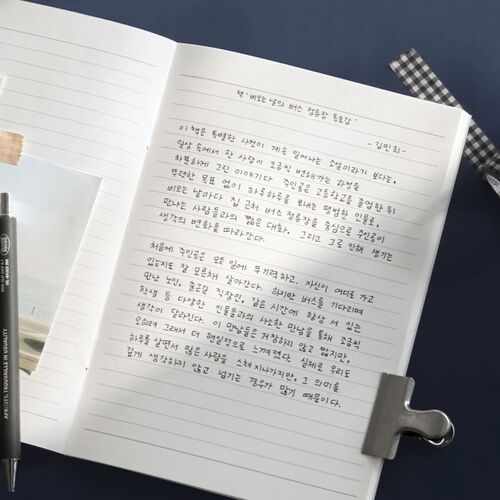 책 '비오는 날의 버스 정류장 독후감'
- 김민희 -
이 책은 특별한 사건이 계속 일어나는 소설이라기 보다는,
일상 속에서 한 사람이 조금씩 변해가는 과정을
차분하게 그린 이야기다. 주인공은 고등학교를 졸업한 뒤
뚜렷한 목표 없이 하루하루를 보내는 평범한 인물로,
비오는 날마다 집 근처 버스 정류장을 중심으로 주인공이
만나는 사람들과의 짧은 대화, 그리고 그로 인해 생기는
생각의 변화를 따라간다.
처음에 주인공은 모든 일에 무기력하고, 자신이 어디로 가고
있는지도 잘 모른채 살아간다. 하지만 버스를 기다리며
만난 노인, 출근길 직장인, 같은 시간에 항상 서 있는
학생 등 다양한 인물들과의 사소한 만남을 통해 조금씩
생각이 달라진다. 이 만남들은 거창하지 않고 짧지만,
오히려 그래서 더 현실적으로 느껴졌다. 실제로 우리도
하루를 살면서 많은 사람을 스쳐 지나가지만, 그 의미를
깊게 생각하지 않고 넘기는 경우가 많기 때문이다.
APRICITY, TROUVAILLE IN USUALITY